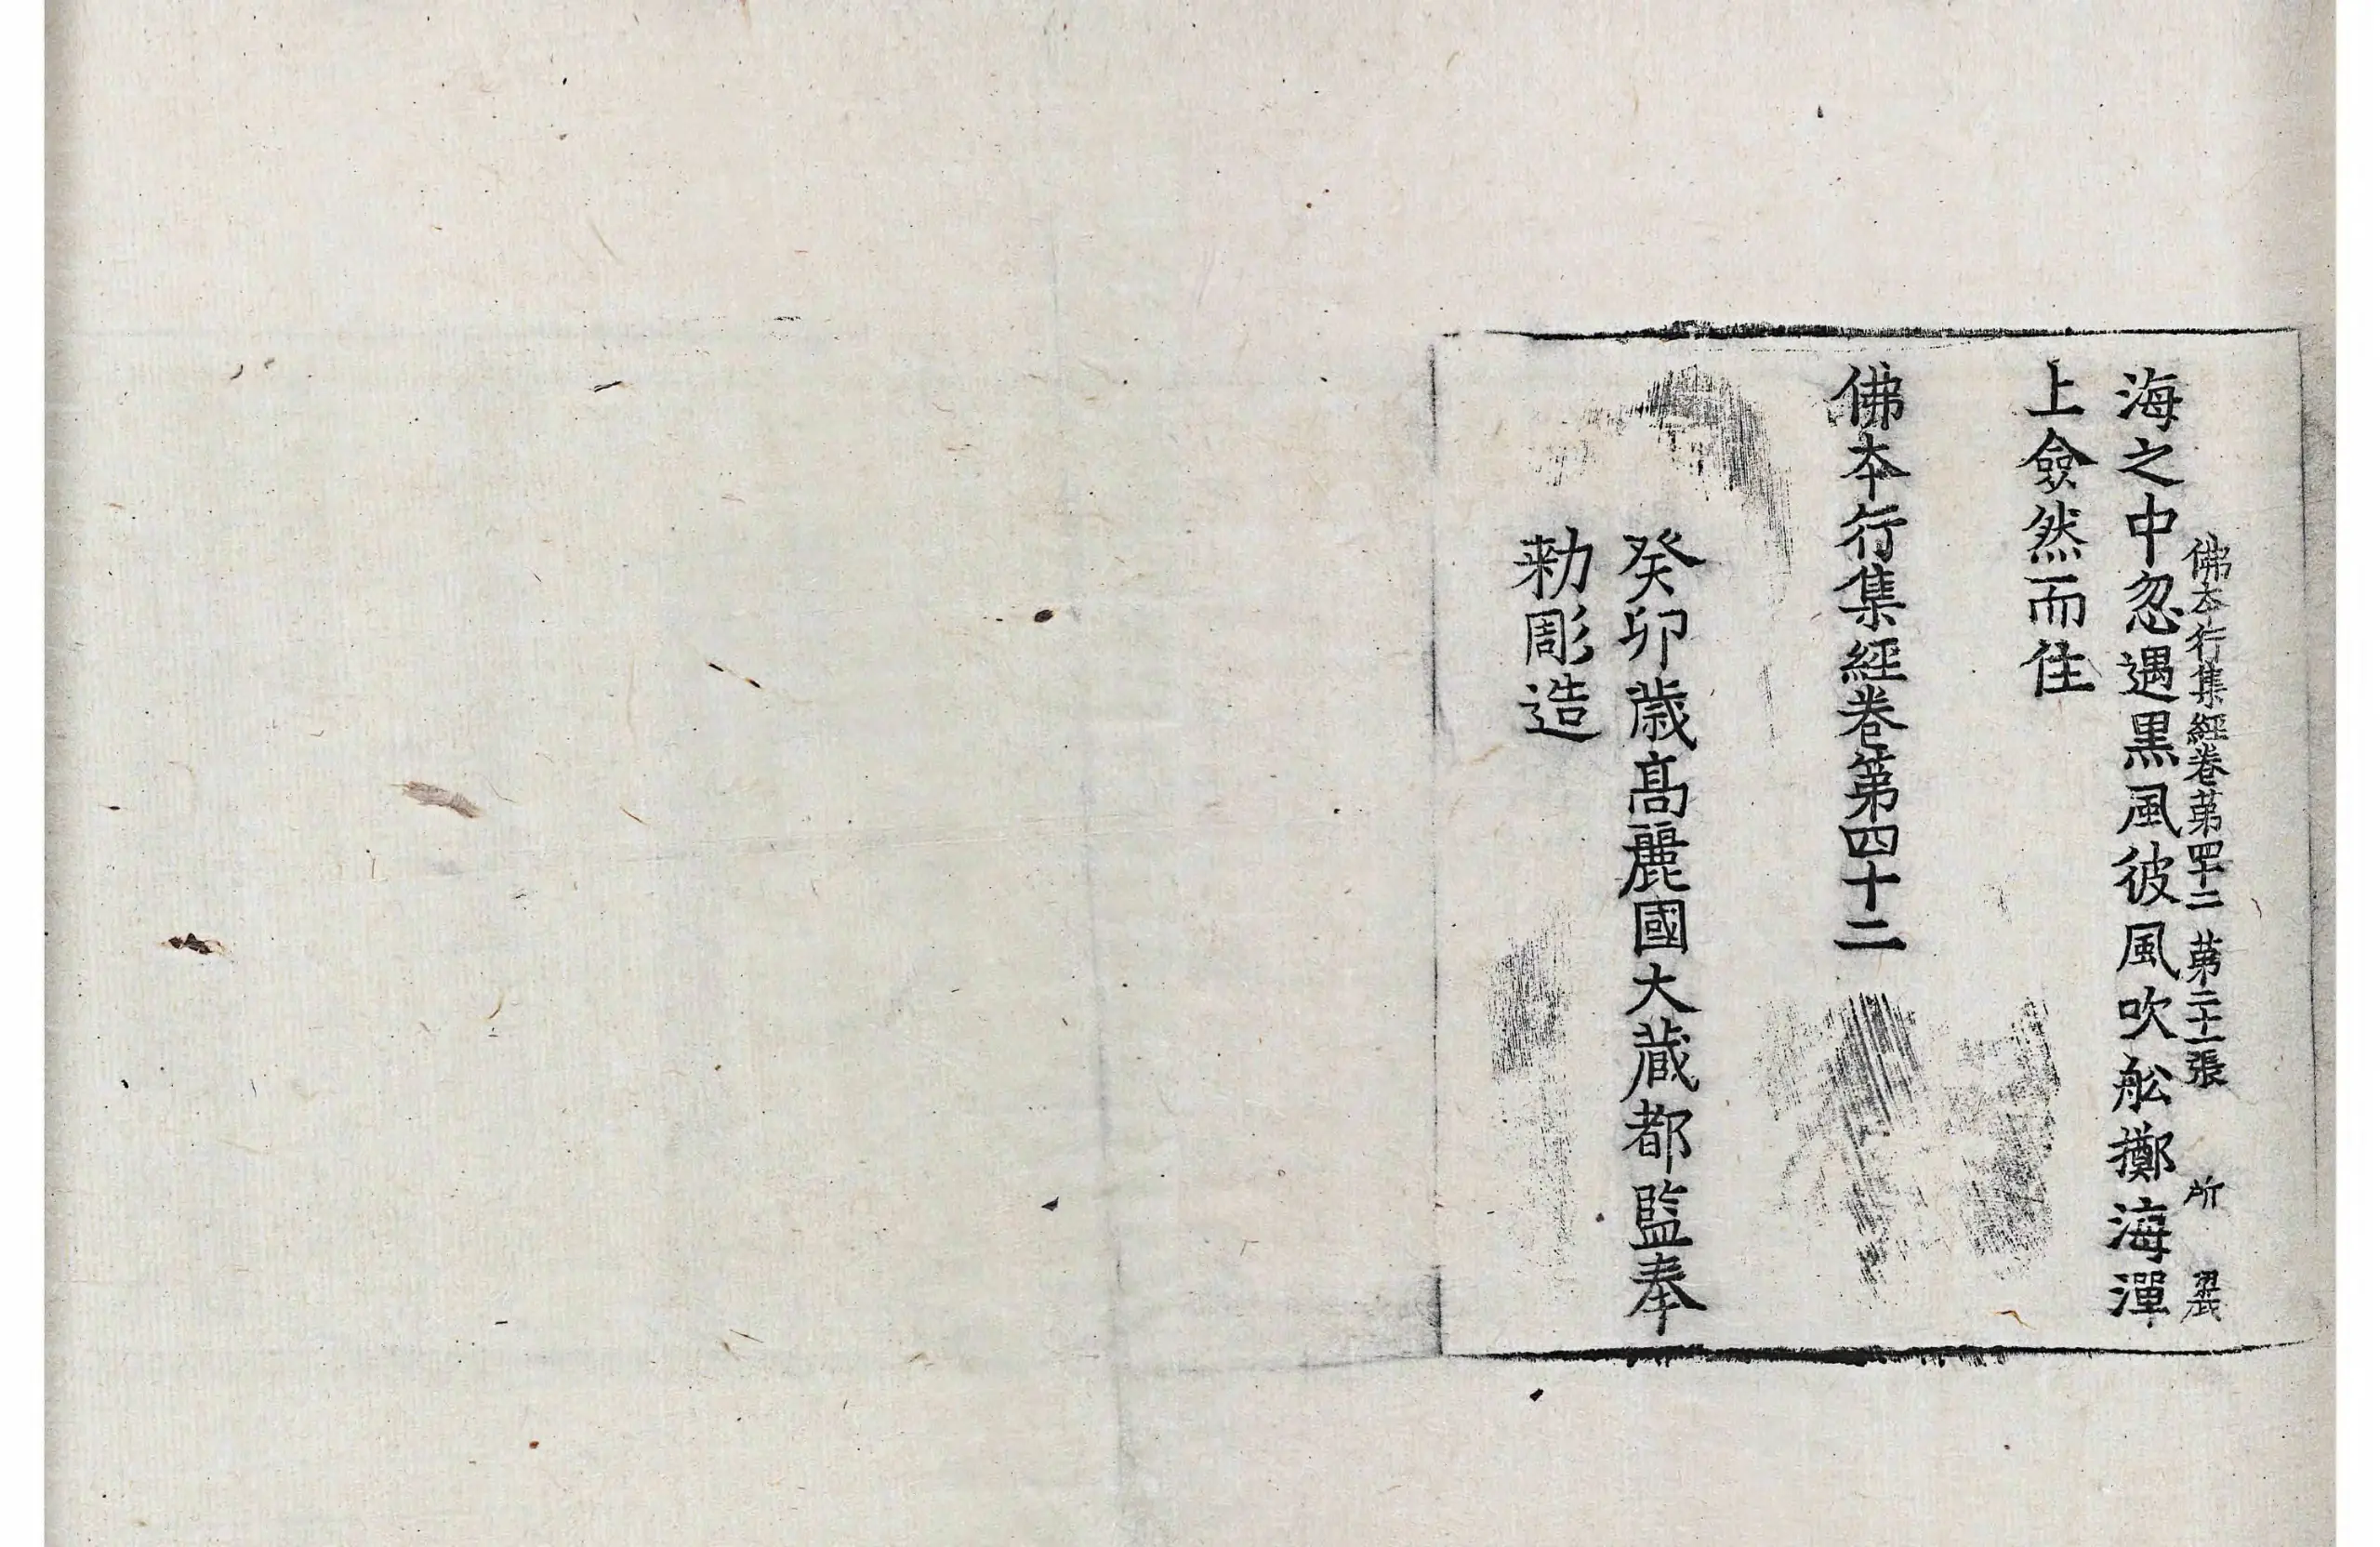 佛本行集經卷第四十二 第二十一張 所
海之中忽遇黒風彼風吹舩擲海潬
上僉然而住
佛本行集經卷第四十二
癸卯歳髙麗國大藏都監奉
勑彫造